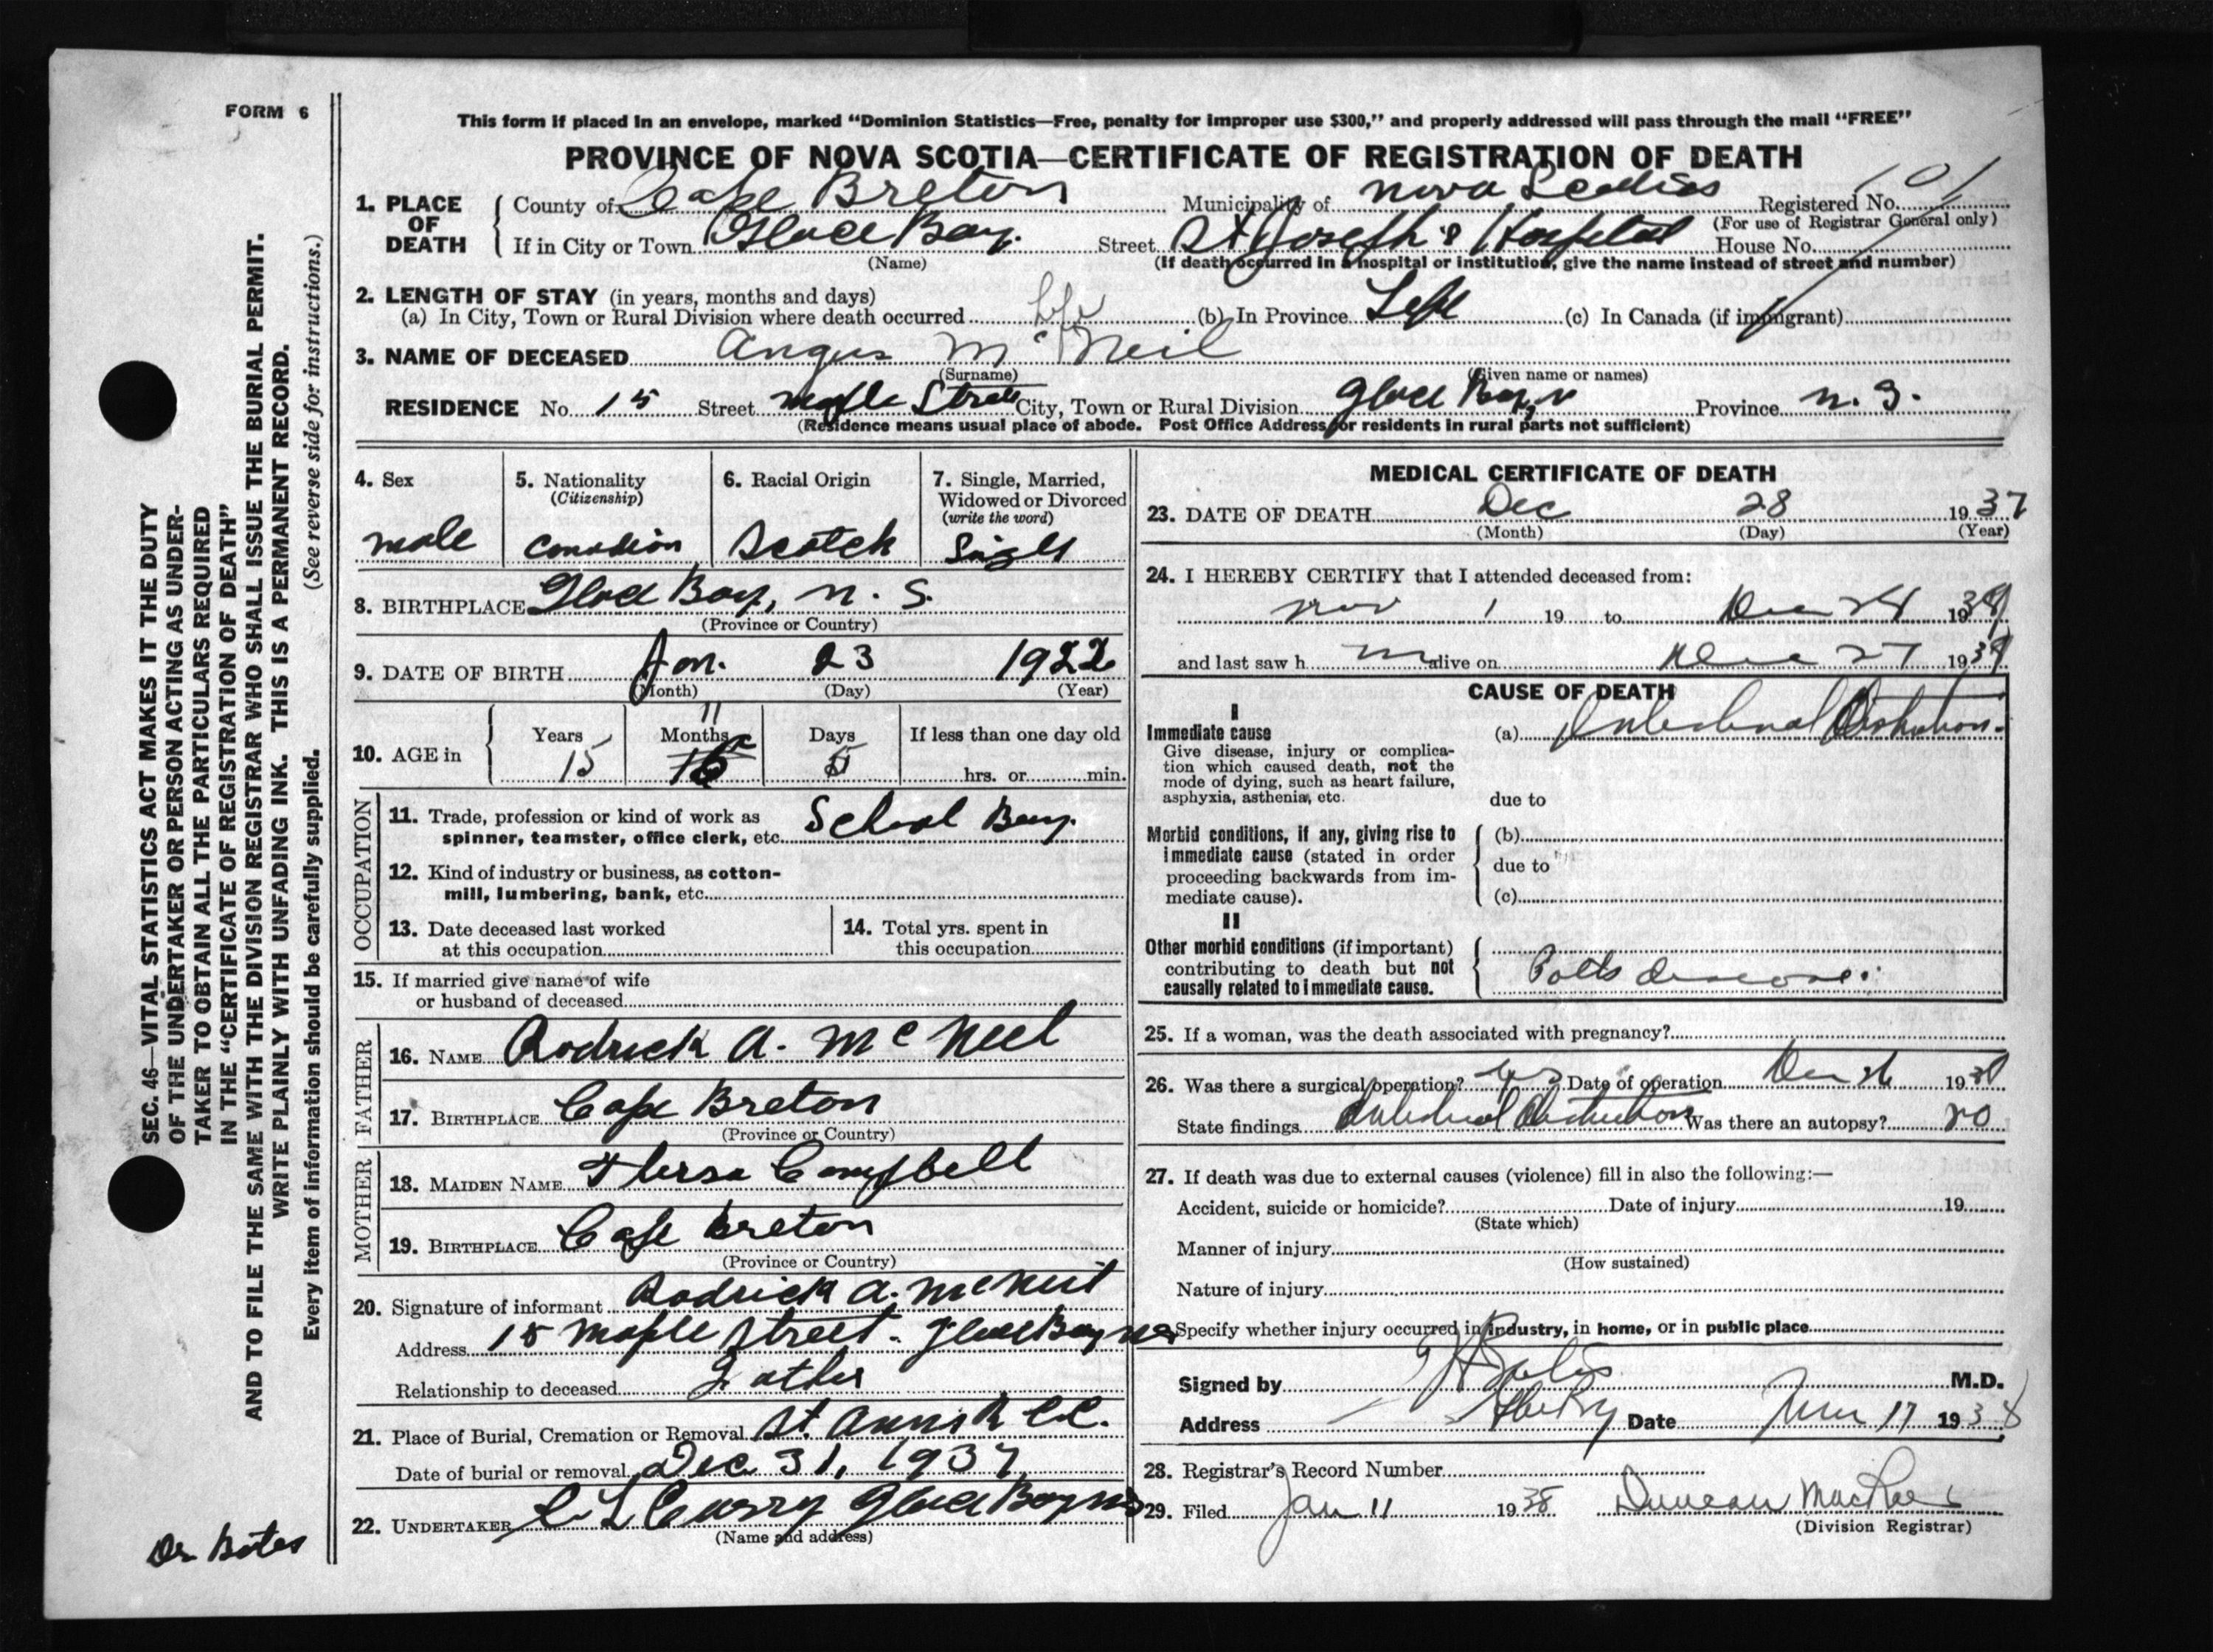 FORM 6
This form if placed in an envelope, marked "Dominion Statistics—Free, penalty for improper use $300," and properly addressed will pass through the mail "FREE"
PROVINCE OF NOVA SCOTIA—CERTIFICATE OF REGISTRATION OF DEATH
1. PLACE OF DEATH County of Cape Breton Municipality of Nova Scotia Registered No. 101
(For use of Registrar General only)
If in City or Town Glace Bay. Street St Joseph's Hospital House No.
(Name) (If death occurred in a hospital or institution, give the name instead of street and number)
2. LENGTH OF STAY (in years, months and days)
(a) In City, Town or Rural Division where death occurred Life (b) In Province Life (c) In Canada (if immigrant)
3. NAME OF DECEASED Angus McNeil
(Surname) (Given name or names)
RESIDENCE No. 15 Street Maple Street City, Town or Rural Division Glace Bay, Province N. S.
(Residence means usual place of abode. Post Office Address for residents in rural parts not sufficient)
4. Sex
male
5. Nationality
(Citizenship)
Canadian
6. Racial Origin
Scotch
7. Single, Married,
Widowed or Divorced
(write the word)
Single
8. BIRTHPLACE Glace Bay, N. S.
(Province or Country)
9. DATE OF BIRTH Jan. 23 1922
(Month) (Day) (Year)
10. AGE in Years Months Days If less than one day old
15 11 5 hrs. or min.
OCCUPATION
11. Trade, profession or kind of work as
spinner, teamster, office clerk, etc. School Boy.
12. Kind of industry or business, as cotton-
mill, lumbering, bank, etc.
13. Date deceased last worked
at this occupation
14. Total yrs. spent in
this occupation
15. If married give name of wife
or husband of deceased
FATHER
16. NAME Rodrick A. McNeil
17. BIRTHPLACE Cape Breton
(Province or Country)
MOTHER
18. MAIDEN NAME Thersa Campbell
19. BIRTHPLACE Cape Breton
(Province or Country)
20. Signature of informant Rodrick A. McNeil
Address 15 Maple Street. Glace Bay NS
Relationship to deceased Father
21. Place of Burial, Cremation or Removal St. Anns R.C.C.
Date of burial or removal Dec 31, 1937
22. UNDERTAKER C L Curry Glace Bay NS
(Name and address)
MEDICAL CERTIFICATE OF DEATH
23. DATE OF DEATH Dec 28 1937
(Month) (Day) (Year)
24. I HEREBY CERTIFY that I attended deceased from:
Nov 1 19 to Dec 19
and last saw h m alive on Dec 27 1937
CAUSE OF DEATH
I
Immediate cause
Give disease, injury or complica-
tion which caused death, not the
mode of dying, such as heart failure,
asphyxia, asthenia, etc.
(a) Intestinal Obstruction.
due to
Morbid conditions, if any, giving rise to
immediate cause (stated in order
proceeding backwards from im-
mediate cause).
(b)
due to
(c)
II
Other morbid conditions (if important)
contributing to death but not
causally related to immediate cause.
Potts disease.
25. If a woman, was the death associated with pregnancy?
26. Was there a surgical operation? Yes Date of operation Dec 26 19
State findings Intestinal Obstruction Was there an autopsy? no
27. If death was due to external causes (violence) fill in also the following:—
Accident, suicide or homicide? Date of injury 19
(State which)
Manner of injury
(How sustained)
Nature of injury
Specify whether injury occurred in industry, in home, or in public place
Signed by M.D.
Address Date 17 1938
28. Registrar's Record Number
29. Filed Jan 11 1938 Duncan MacRae
(Division Registrar)
SEC. 46—VITAL STATISTICS ACT MAKES IT THE DUTY
OF THE UNDERTAKER OR PERSON ACTING AS UNDER-
TAKER TO OBTAIN ALL THE PARTICULARS REQUIRED
IN THE "CERTIFICATE OF REGISTRATION OF DEATH"
AND TO FILE THE SAME WITH THE DIVISION REGISTRAR WHO SHALL ISSUE THE BURIAL PERMIT.
WRITE PLAINLY WITH UNFADING INK. THIS IS A PERMANENT RECORD.
Every item of information should be carefully supplied. (See reverse side for instructions.)
Dr. Bates